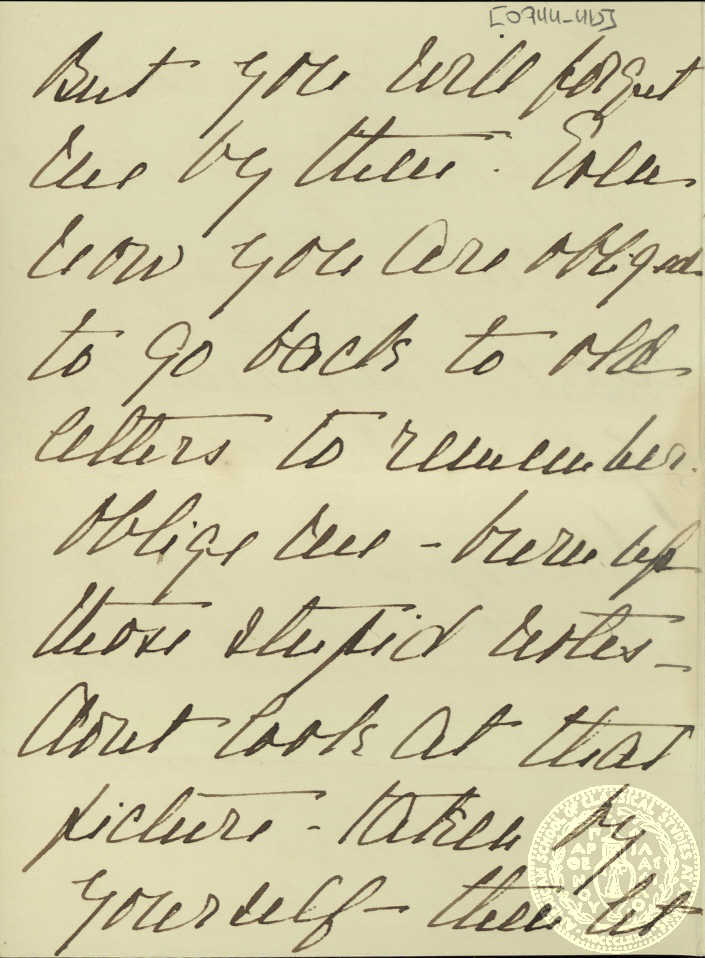 [0744-4b]
But you will forget
me by then. Even
now you are obliged
to go back to old
letters to remember.
oblige me - burn up
those stupid notes -
dont look at that
picture - taken by
yourself - then let